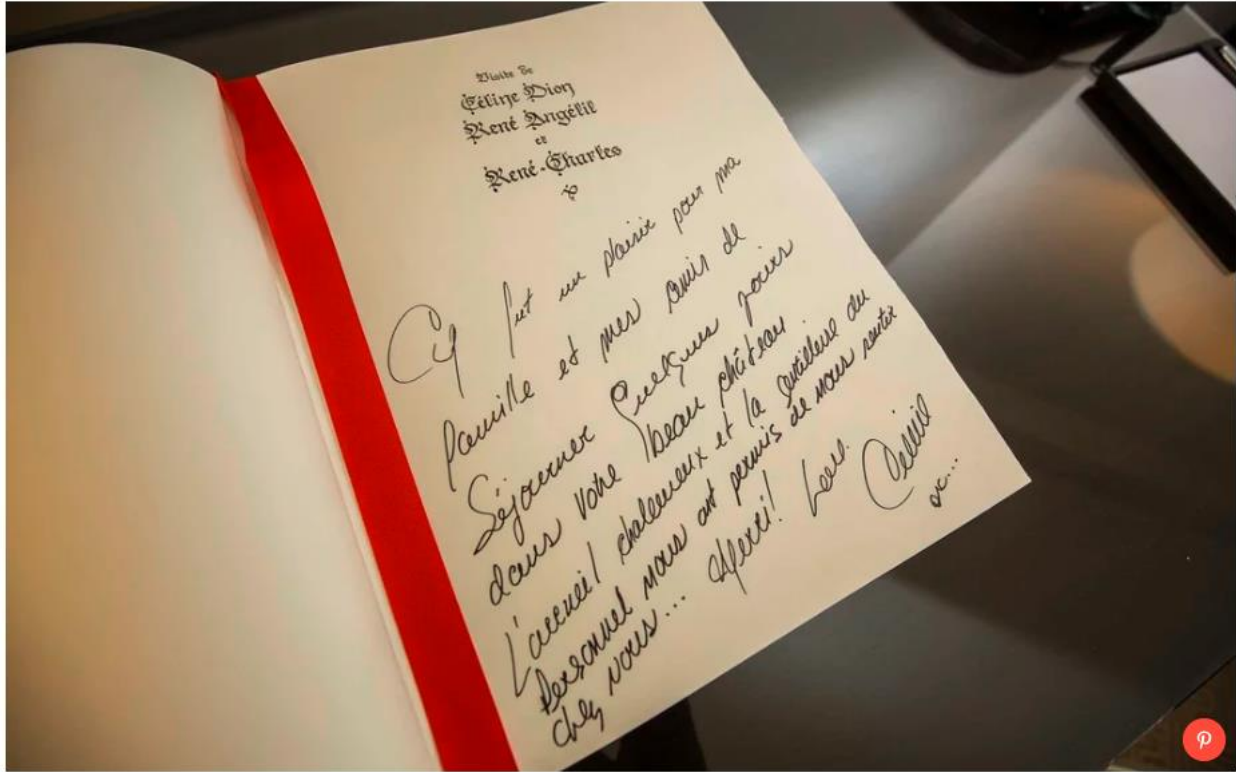 Visite de
Céline Dion
René Angélil
et
René-Charles
Ce fut un plaisir pour ma
famille et mes amis de
Séjourner Quelques jours
dans votre beau château.
L'accueil chaleureux et la gentillesse du
Personnel nous ont permis de nous sentir
chez nous... Merci! Love.
Céline
xx...